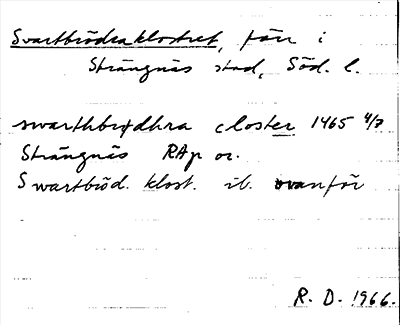 Svartbrödraklostret, förr i
Strängnäs stad, Söd. l.
swarthbrødhra closter 1465 4/7
Strängnäs RAp or.
Swartbröd. klost. ib. ovanför
R. D. 1966.